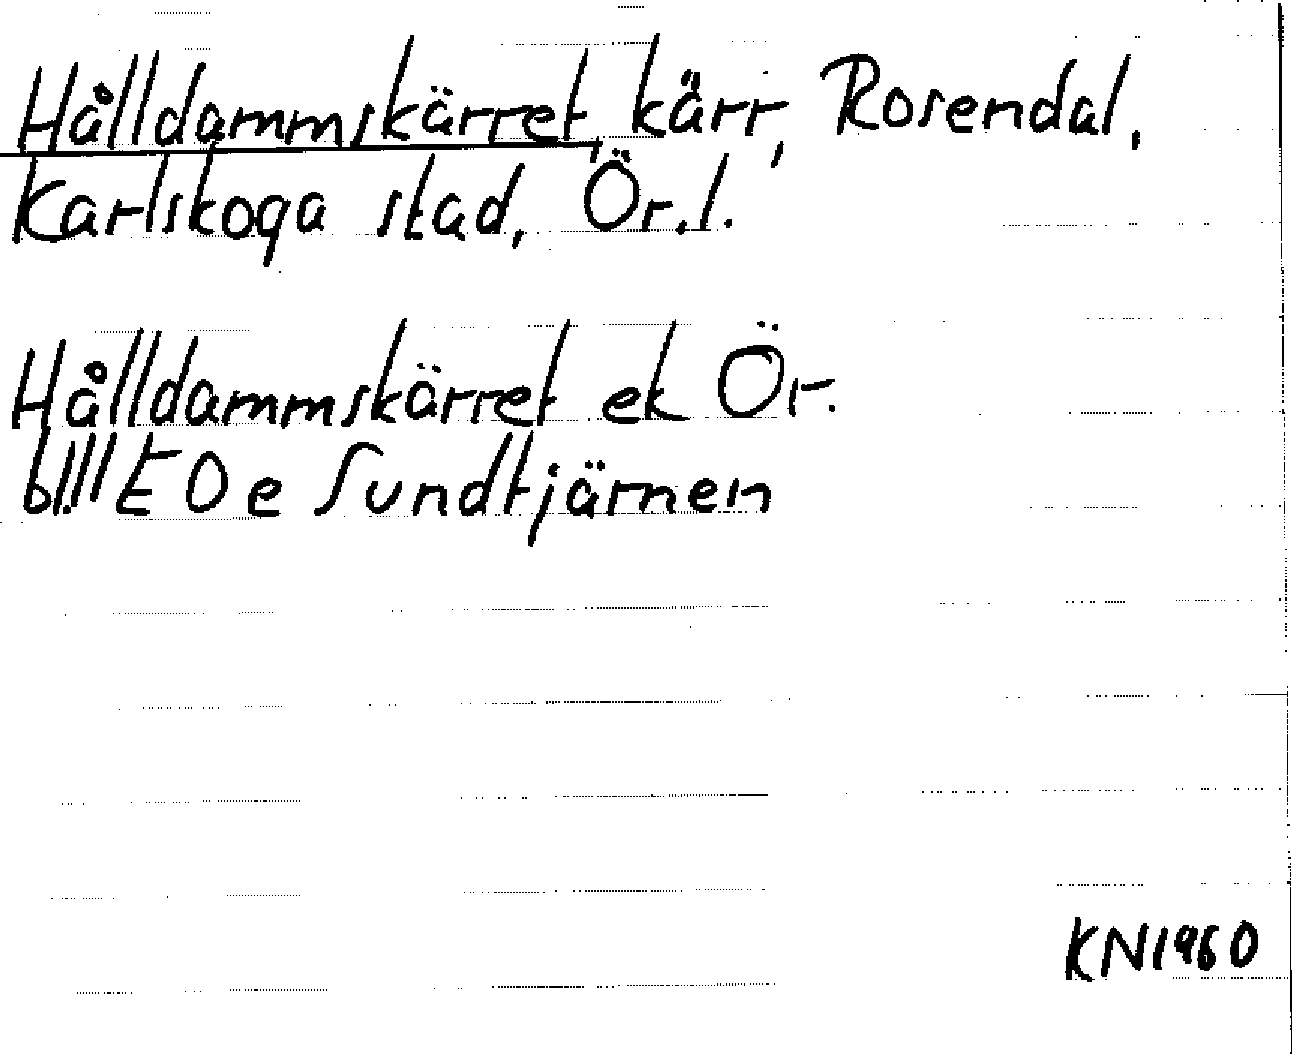 Hålldammskärret, kärr, Rosendal,
Karlskoga stad, Ör.l.
Hålldammskärret ek Ör.
bl.11 E O e Sundtjärnen
KN1960